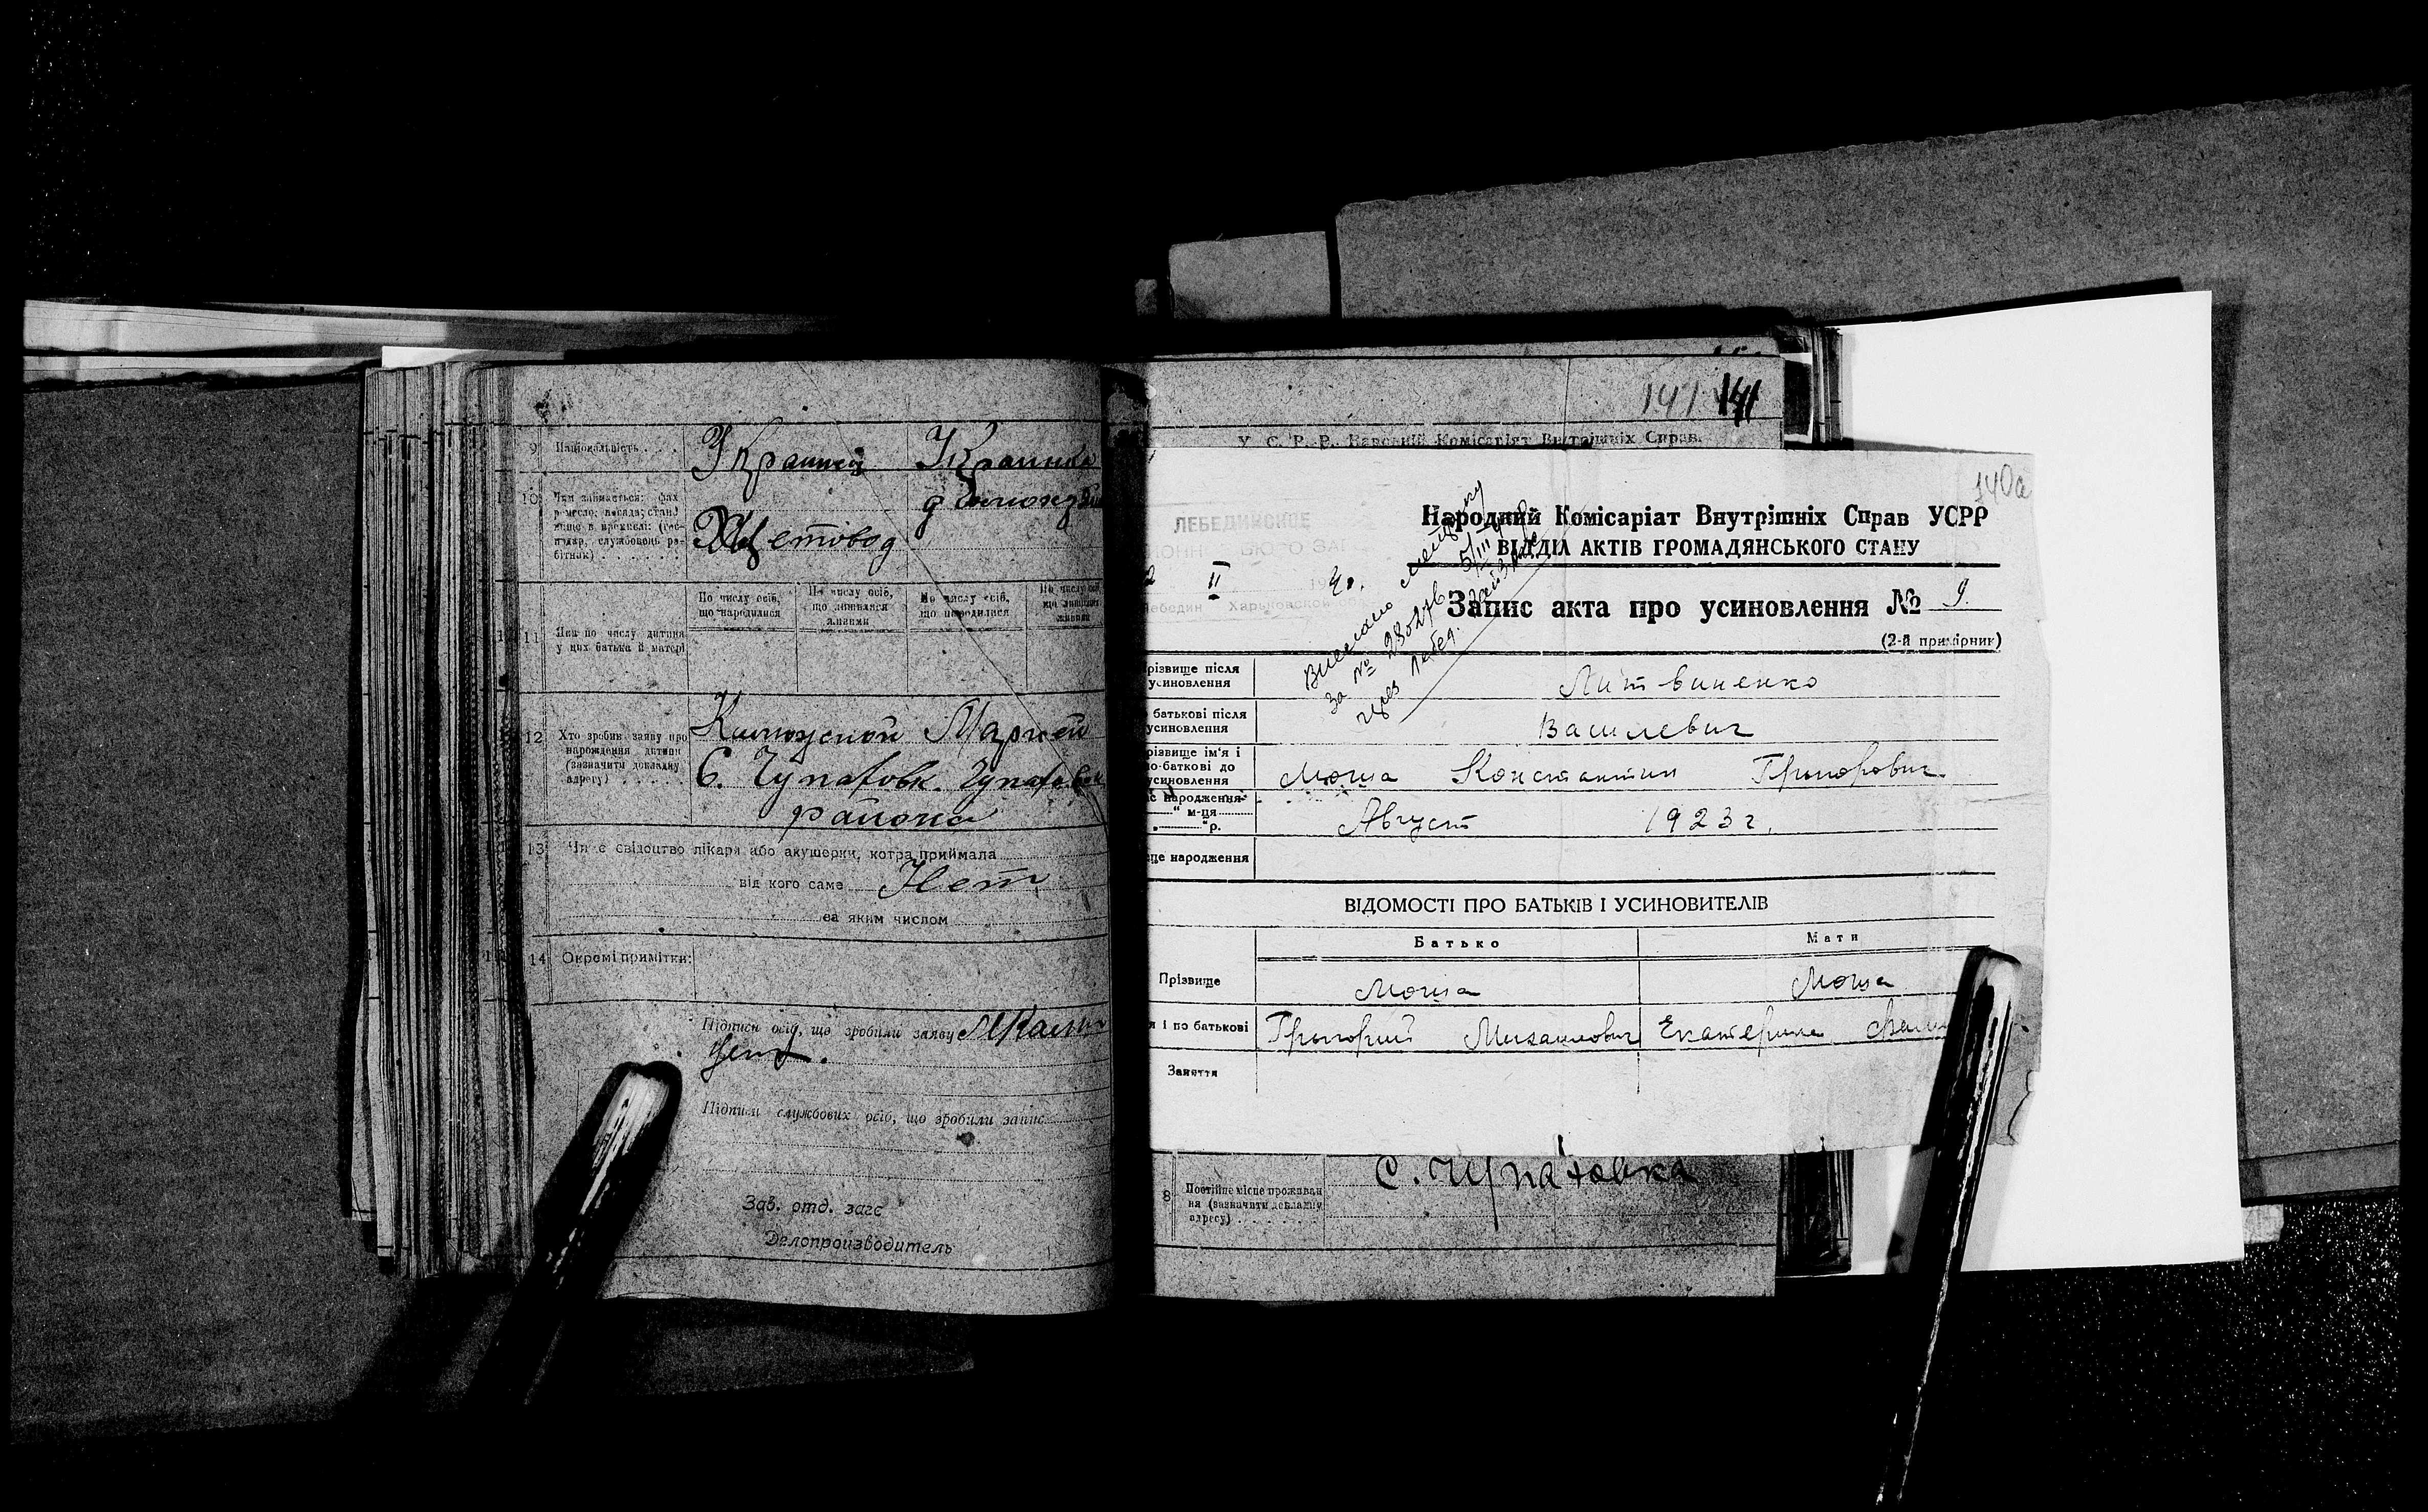 9 Національність . . . . Украинец Украинка
10 Чим займається: фах
ремесло; посада; стано-
вище в промислі: (гос-
подар, службовець ро-
бітник) Цветовод домохоз
По числу осіб, що народилися
По числу осіб, що лишилися живими
По числу осіб, що народилися
По числу осіб, що лишилися живими
11 Яка по числу дитина
у цих батька й матері
12 Хто зробив заяву про
народження дитини
(зазначити докладну
адресу) . . . . .
Марией
С. Чупаховк. Чупаховск
района
13 Чи є свідоцтво лікаря або акушерки, котра приймала
від кого саме Нет
за яким числом
14 Окремі примітки:
Підписи осіб, що зробили заяву
Підписи службових осіб, що зробили запис
Зав. отд. загс
Делопроизводитель
141 141
У. С. Р. Р. Народній Комісаріят Внутрішніх Справ.
140а
ЛЕБЕДИНСКОЕ
II 40.
Лебедин Харьковской
Народний Комісаріат Внутрішніх Справ УСРР
ВІДДІЛ АКТІВ ГРОМАДЯНСЬКОГО СТАНУ
Запис акта про усиновлення № 9.
(2-й примірник)
За № 28027б 5/III
через Лебед.
різвище після
усиновлення Литвиненко
батькові після
усиновлення Василевич
різвище ім'я і
по-баткові до
усиновлення Моша Константин Григорович
с народження
" м-ця
" р. Август 1923 г.
це народження
ВІДОМОСТІ ПРО БАТЬКІВ І УСИНОВИТЕЛІВ
Батько Мати
Прізвище Моша Моша
я і по батькові Григорий Михаилович Екатерина
Заняття
С. Чупаховка
8 Постійне місце проживан
ня (зазначити докладну
адресу) . . . . . .